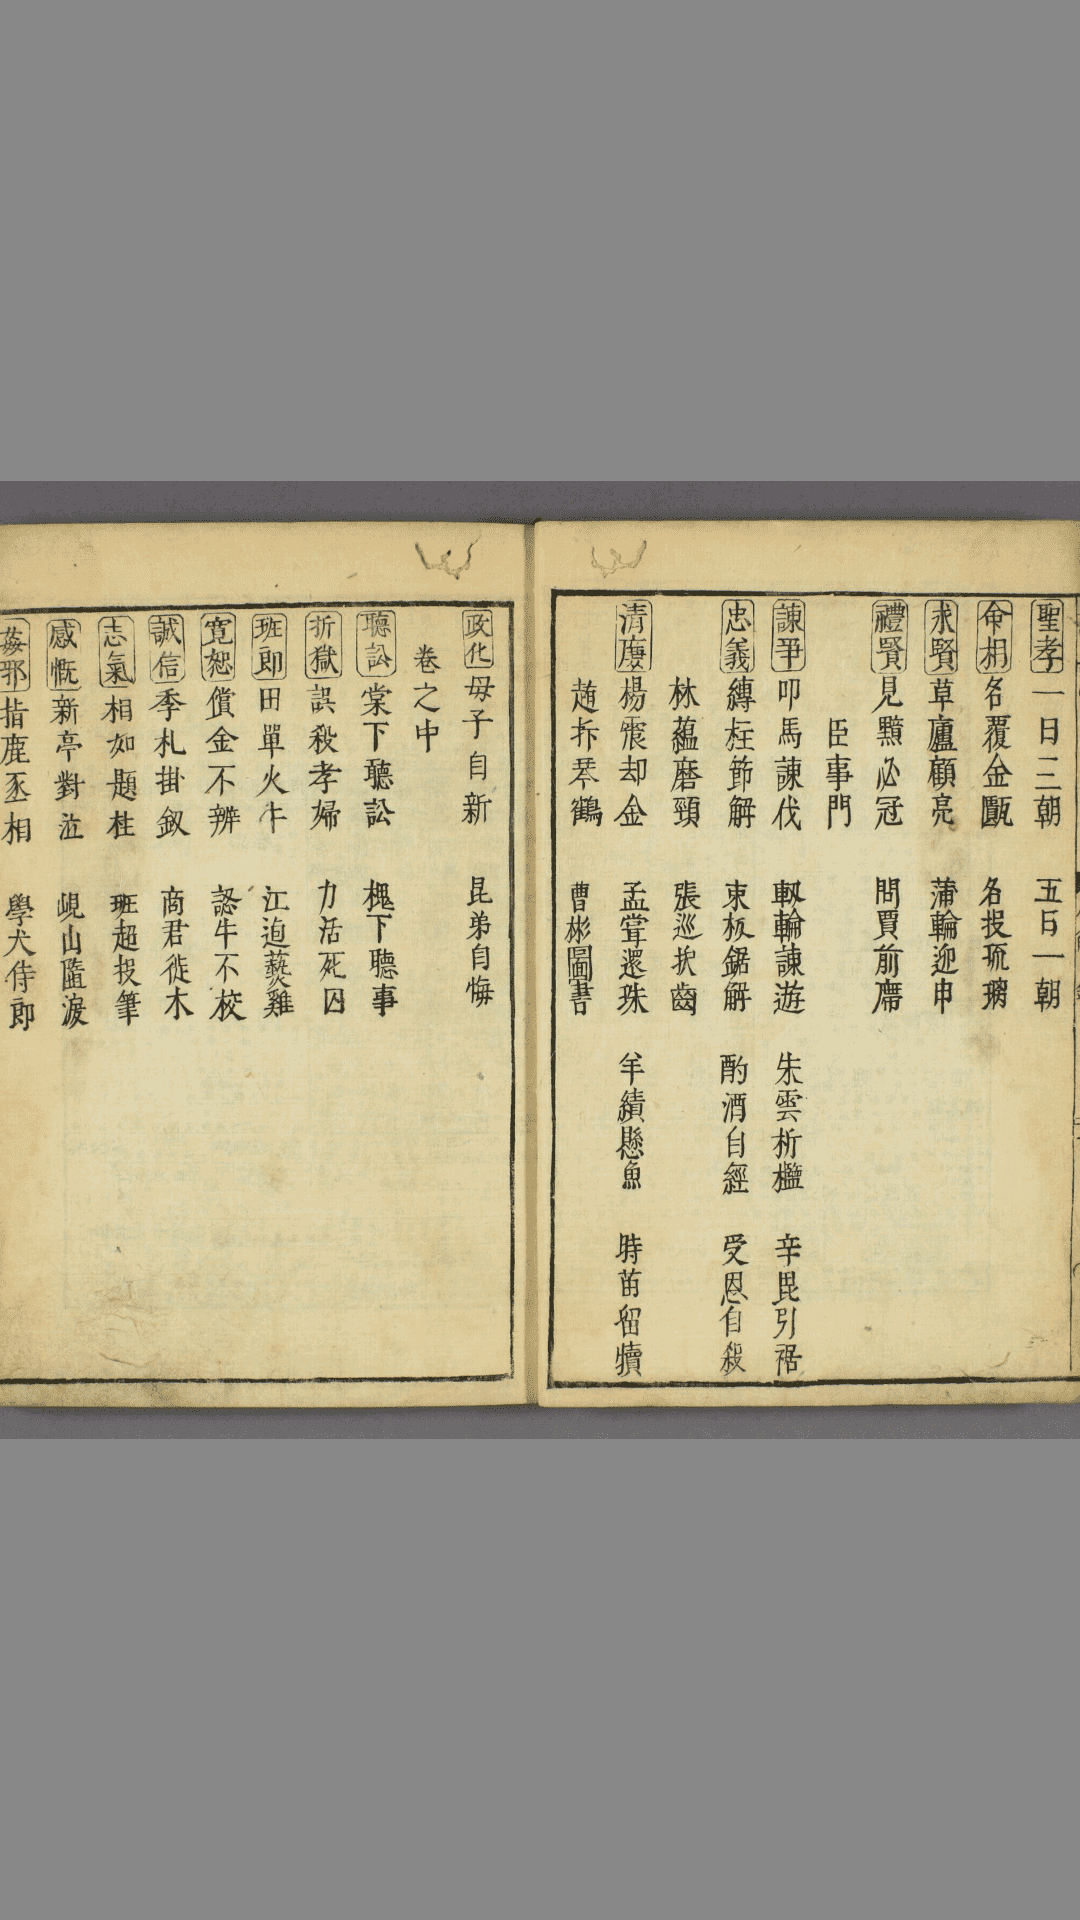 聖孝 一日三朝 五日一朝
命相 名覆金甌 名投琉璃
求賢 草廬顧亮 蒲輪迎申
禮賢 見黯必冠 問賈前席
臣事門
諫爭 叩馬諫伐 軔輪諫遊 朱雲折檻 辛毘引裾
忠義 縛柱節解 束板鋸解 酌酒自經 受恩自殺
林蘊磨頸 張巡抉齒
清慶 楊震却金 孟嘗還珠 羊續懸魚 時苗留犢
趙抃琴鶴 曹彬圖書
政化 母子自新 昆弟自悔
卷之中
聽訟 棠下聽訟 槐下聽事
折獄 誤殺孝婦 力活死囚
班師 田單火牛 江逌爇雞
寬恕 償金不辨 認牛不校
誠信 季札掛劔 商君徙木
志氣 相如題柱 班超投筆
感慨 新亭對泣 峴山墮淚
姦邪 指鹿丞相 學犬侍郎